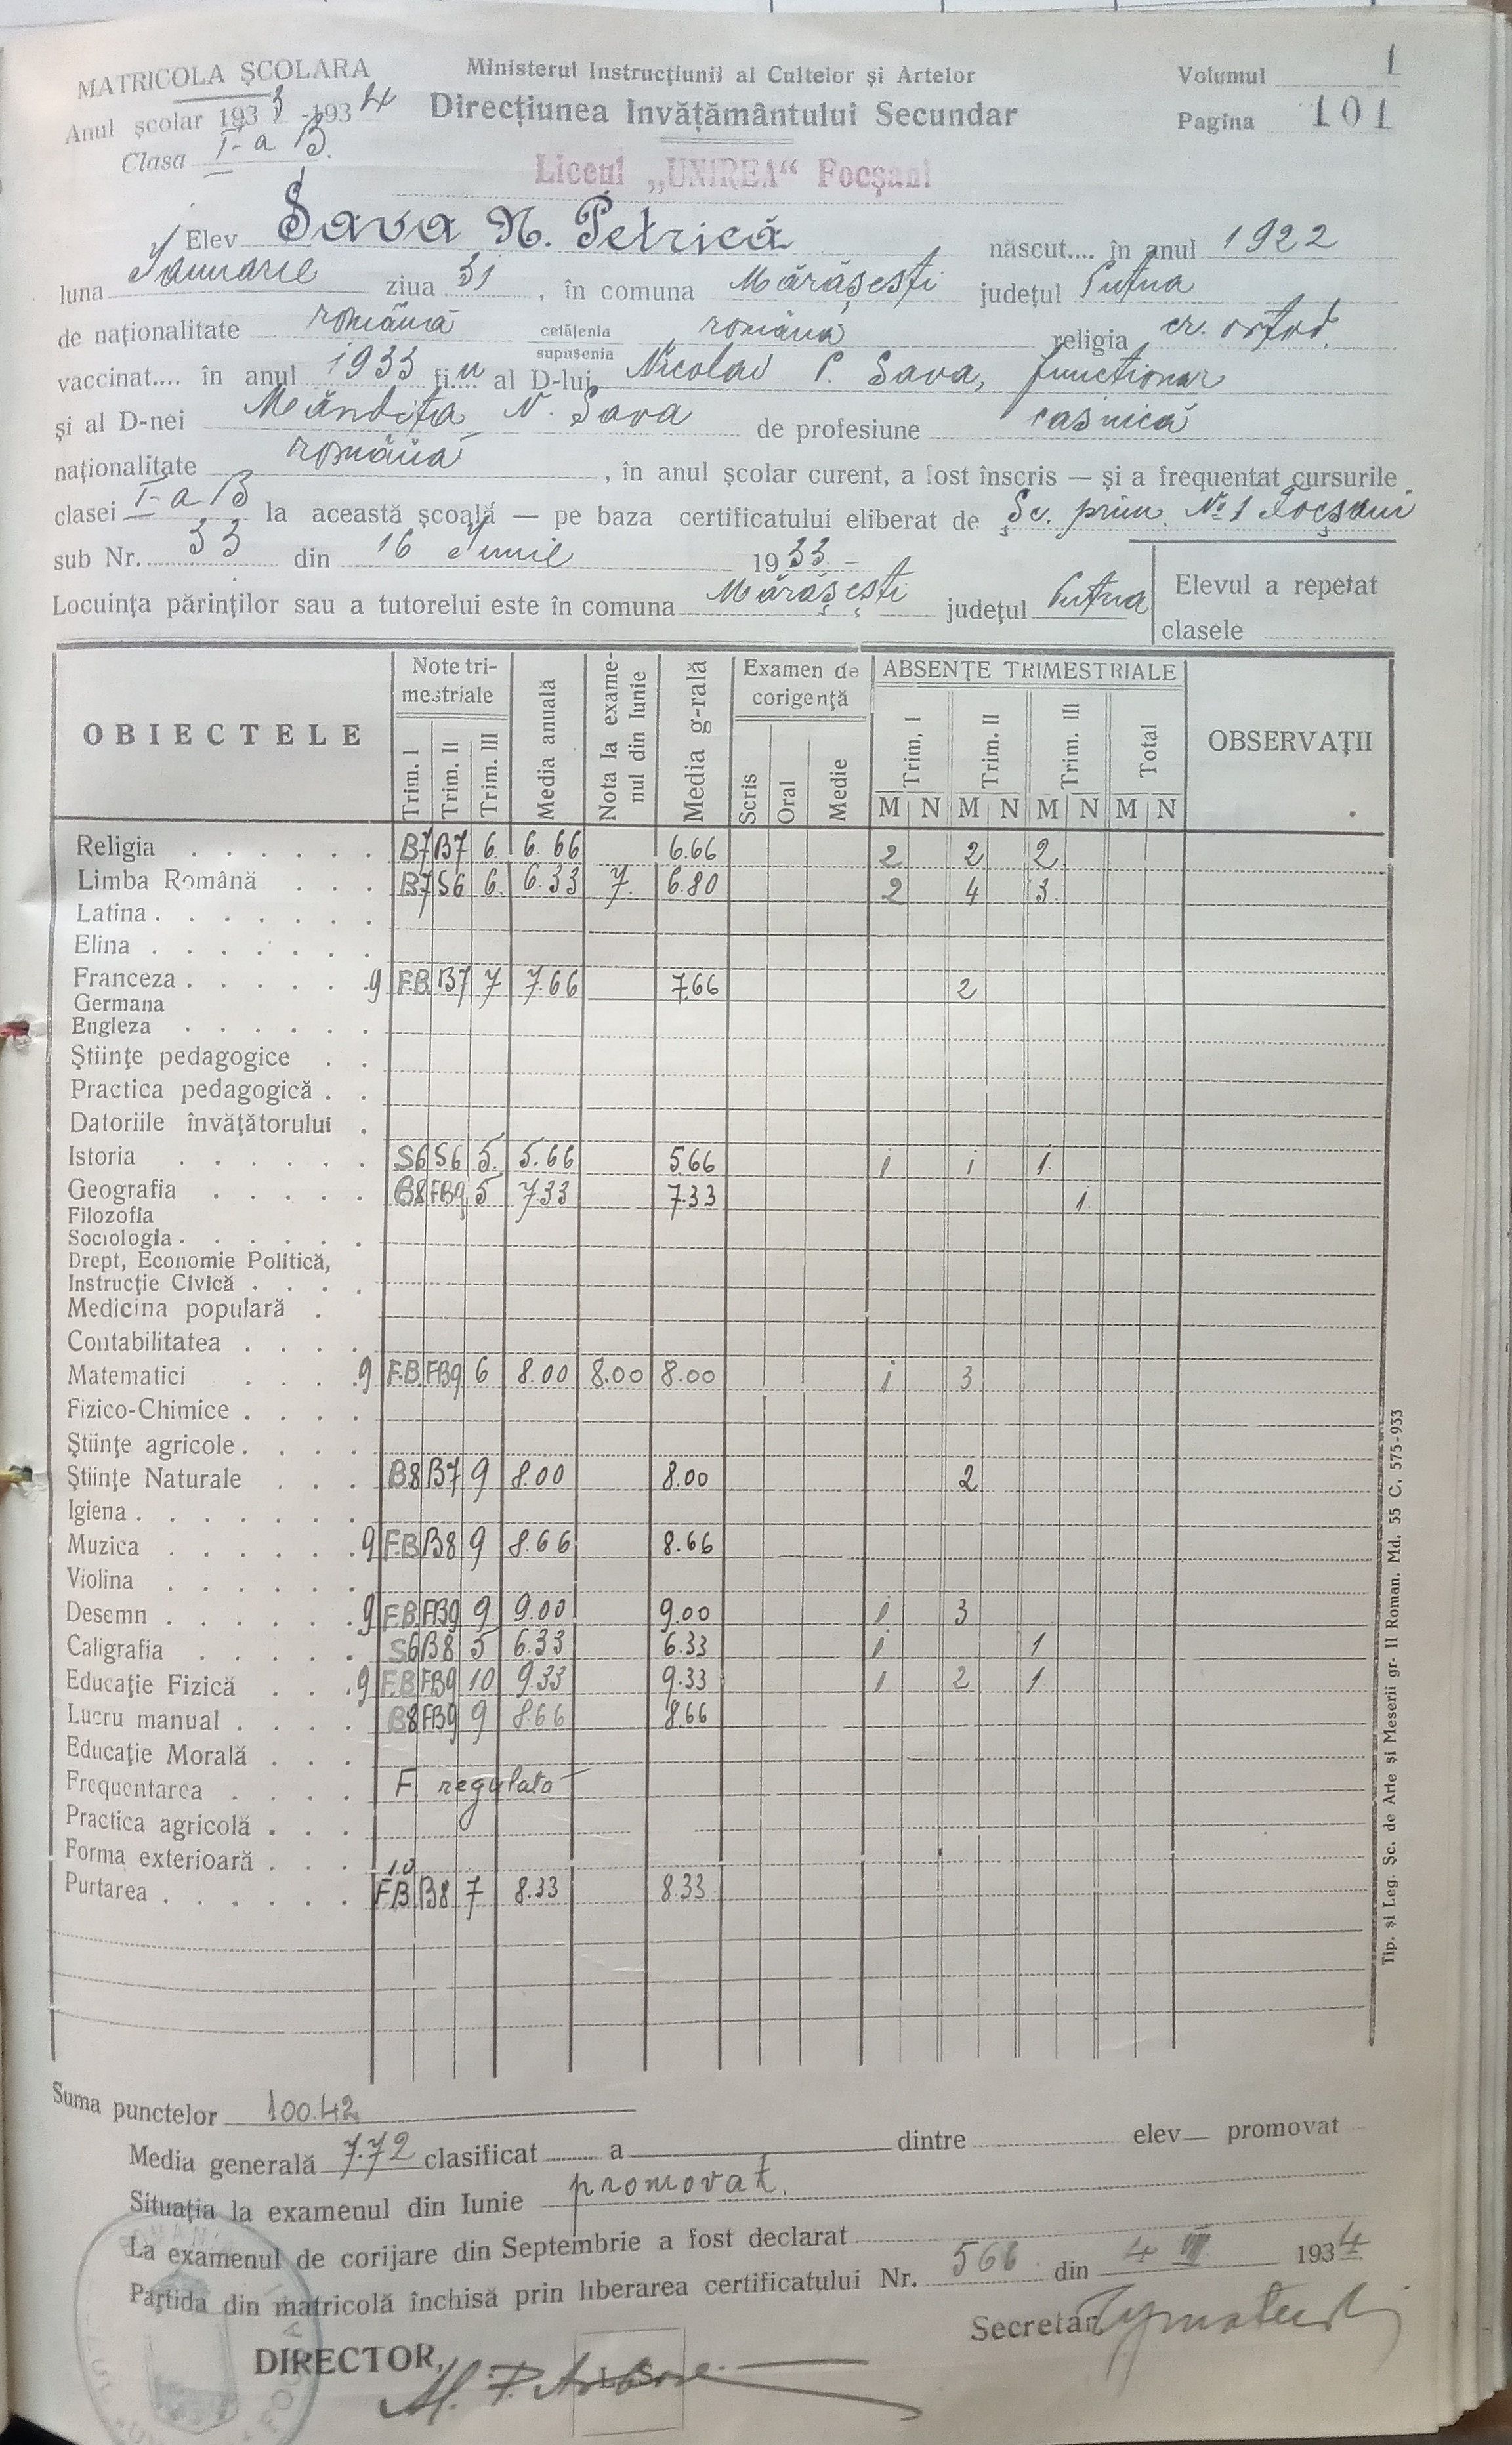 MATRICOLA ŞCOLARA
Ministerul Instrucţiunii al Cultelor şi Artelor
Volumul 1
Anul şcolar 1933-1934
Direcţiunea Invăţământului Secundar
Pagina 101
Clasa I-a B.
Liceul „UNIREA“ Focşani
Elev Sava N. Petrică născut.... în anul 1922
luna Ianuarie ziua 31, în comuna Mărăşeşti judeţul Putna
de naţionalitate română cetăţenia supuşenia română religia cr. ortod.
vaccinat.... în anul 1933 fi....u al D-lui Nicolae P. Sava, funcţionar
şi al D-nei Măndiţa N. Sava de profesiune casnică
naţionalitate română, în anul şcolar curent, a fost înscris — şi a frequentat cursurile
clasei I-a B la această şcoală — pe baza certificatului eliberat de Şc. prim. No 1 Focşani
sub Nr. 33 din 16 Iunie 1933 -
Locuinţa părinţilor sau a tutorelui este în comuna Mărăşeşti judeţul Putna
Elevul a repetat
clasele
OBIECTELE
Note trimestriale
Trim. I
Trim. II
Trim. III
Media anuală
Nota la examenul din Iunie
Media g-rală
Examen de corigenţă
Scris
Oral
Medie
ABSENŢE TRIMESTRIALE
Trim, I
Trim. II
Trim. III
Total
M N M N M N M N
OBSERVAŢII
Religia B7 B7 6 6.66 6.66 2 2 2
Limba Română B7 S6 6. 6.33 7. 6.80 2 4 3.
Latina
Elina
Franceza 9 F.B. B7 7 7.66 7.66 2
Germana
Engleza
Ştiinţe pedagogice
Practica pedagogică
Datoriile învăţătorului
Istoria S6 S6 5. 5.66 5.66 1 1 1
Geografia B8 FB9 5 7.33 7.33 1
Filozofia
Sociologia
Drept, Economie Politică,
Instrucţie Civică
Medicina populară
Contabilitatea
Matematici 9 F.B. FB9 6 8.00 8.00 8.00 1 3
Fizico-Chimice
Ştiinţe agricole
Ştiinţe Naturale B8 B7 9 8.00 8.00 2
Igiena
Muzica 9 F.B B8 9 8.66 8.66
Violina
Desemn 9 F.B. FB9 9 9.00 9.00 1 3
Caligrafia S6 B8 5 6.33 6.33 1 1
Educaţie Fizică 9 F.B FB9 10 9.33 9.33 1 2 1
Lucru manual B8 FB9 9 8.66 8.66
Educaţie Morală
Frequentarea F. regulată
Practica agricolă
Forma exterioară
Purtarea 10 FB B8 7 8.33 8.33
Tip. şi Leg. Şc. de Arte şi Meserii gr- II Roman. Md. 55 C. 575-933
Suma punctelor 100.42
Media generală 7.72 clasificat a dintre elev— promovat
Situaţia la examenul din Iunie promovat.
La examenul de corijare din Septembrie a fost declarat
Partida din matricolă închisă prin liberarea certificatului Nr. 566 din 4 VII 1934
Secretar
DIRECTOR,
L. S.